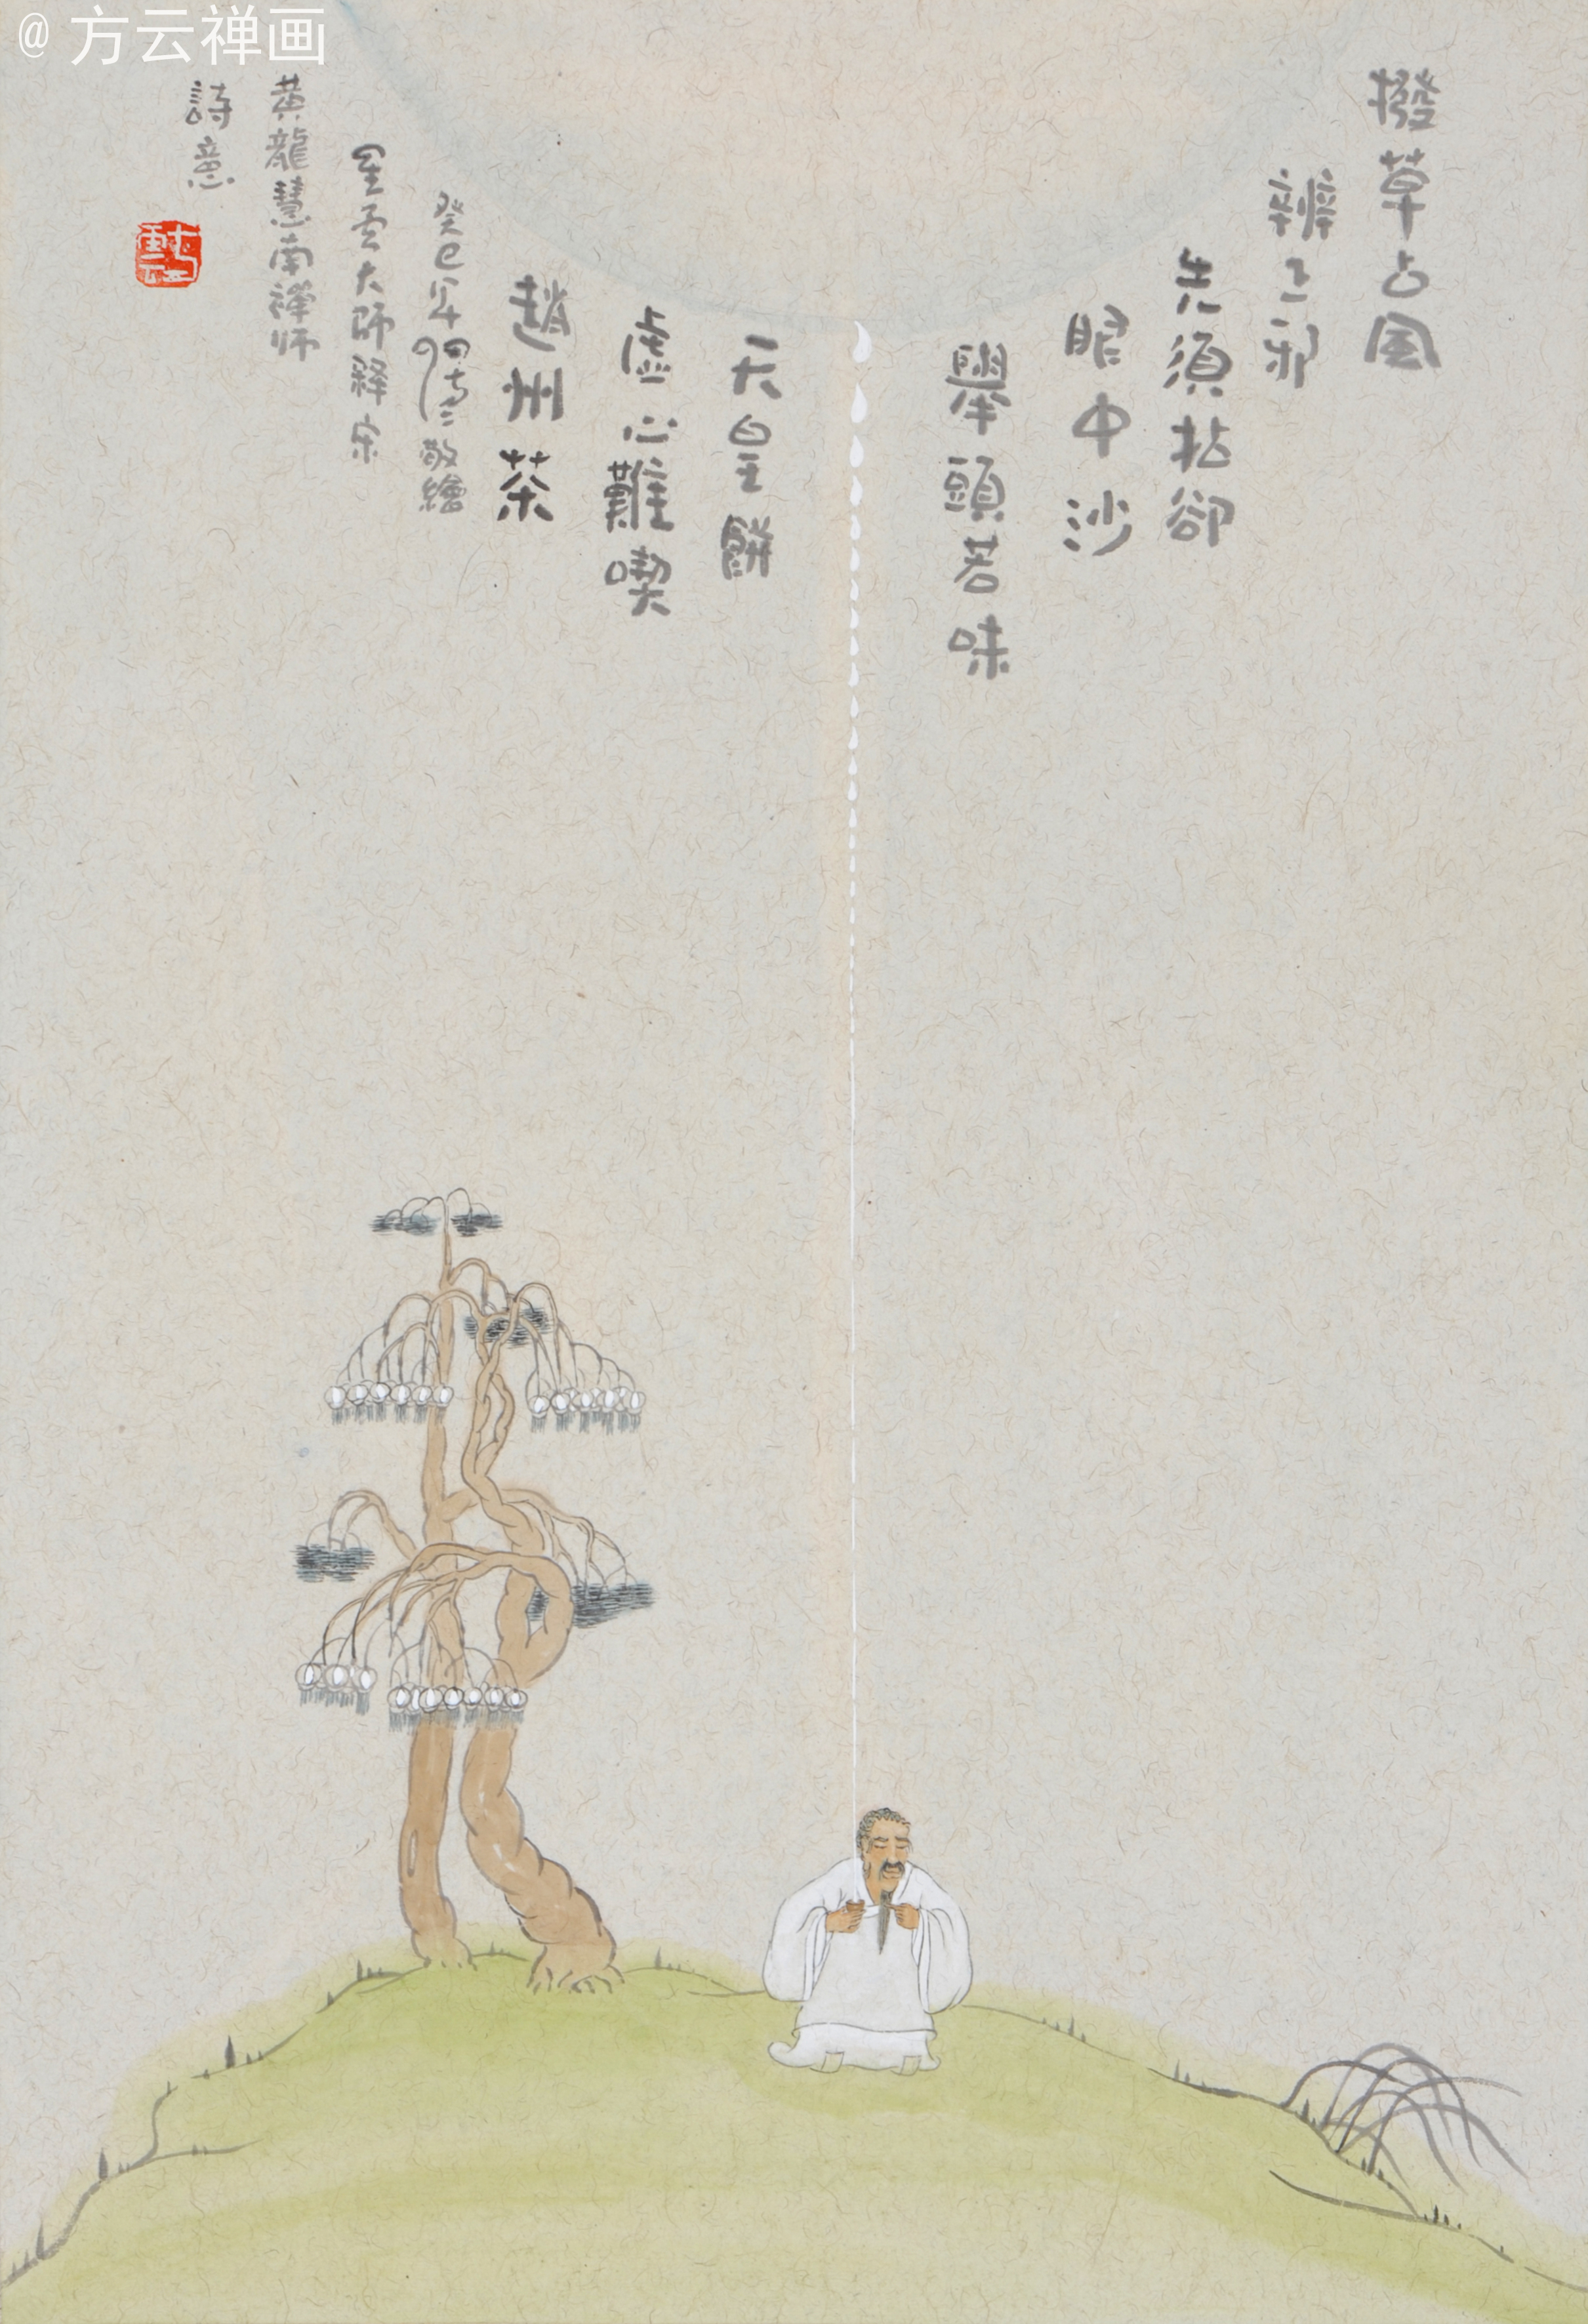 @方云禅画
撥草占風
辨正邪
先須拈卻
眼中沙
舉頭若味
天皇餅
虛心難喫
趙州茶
癸巳年敬繪
星雲大師釋宋
黄龍慧南禪师
詩意